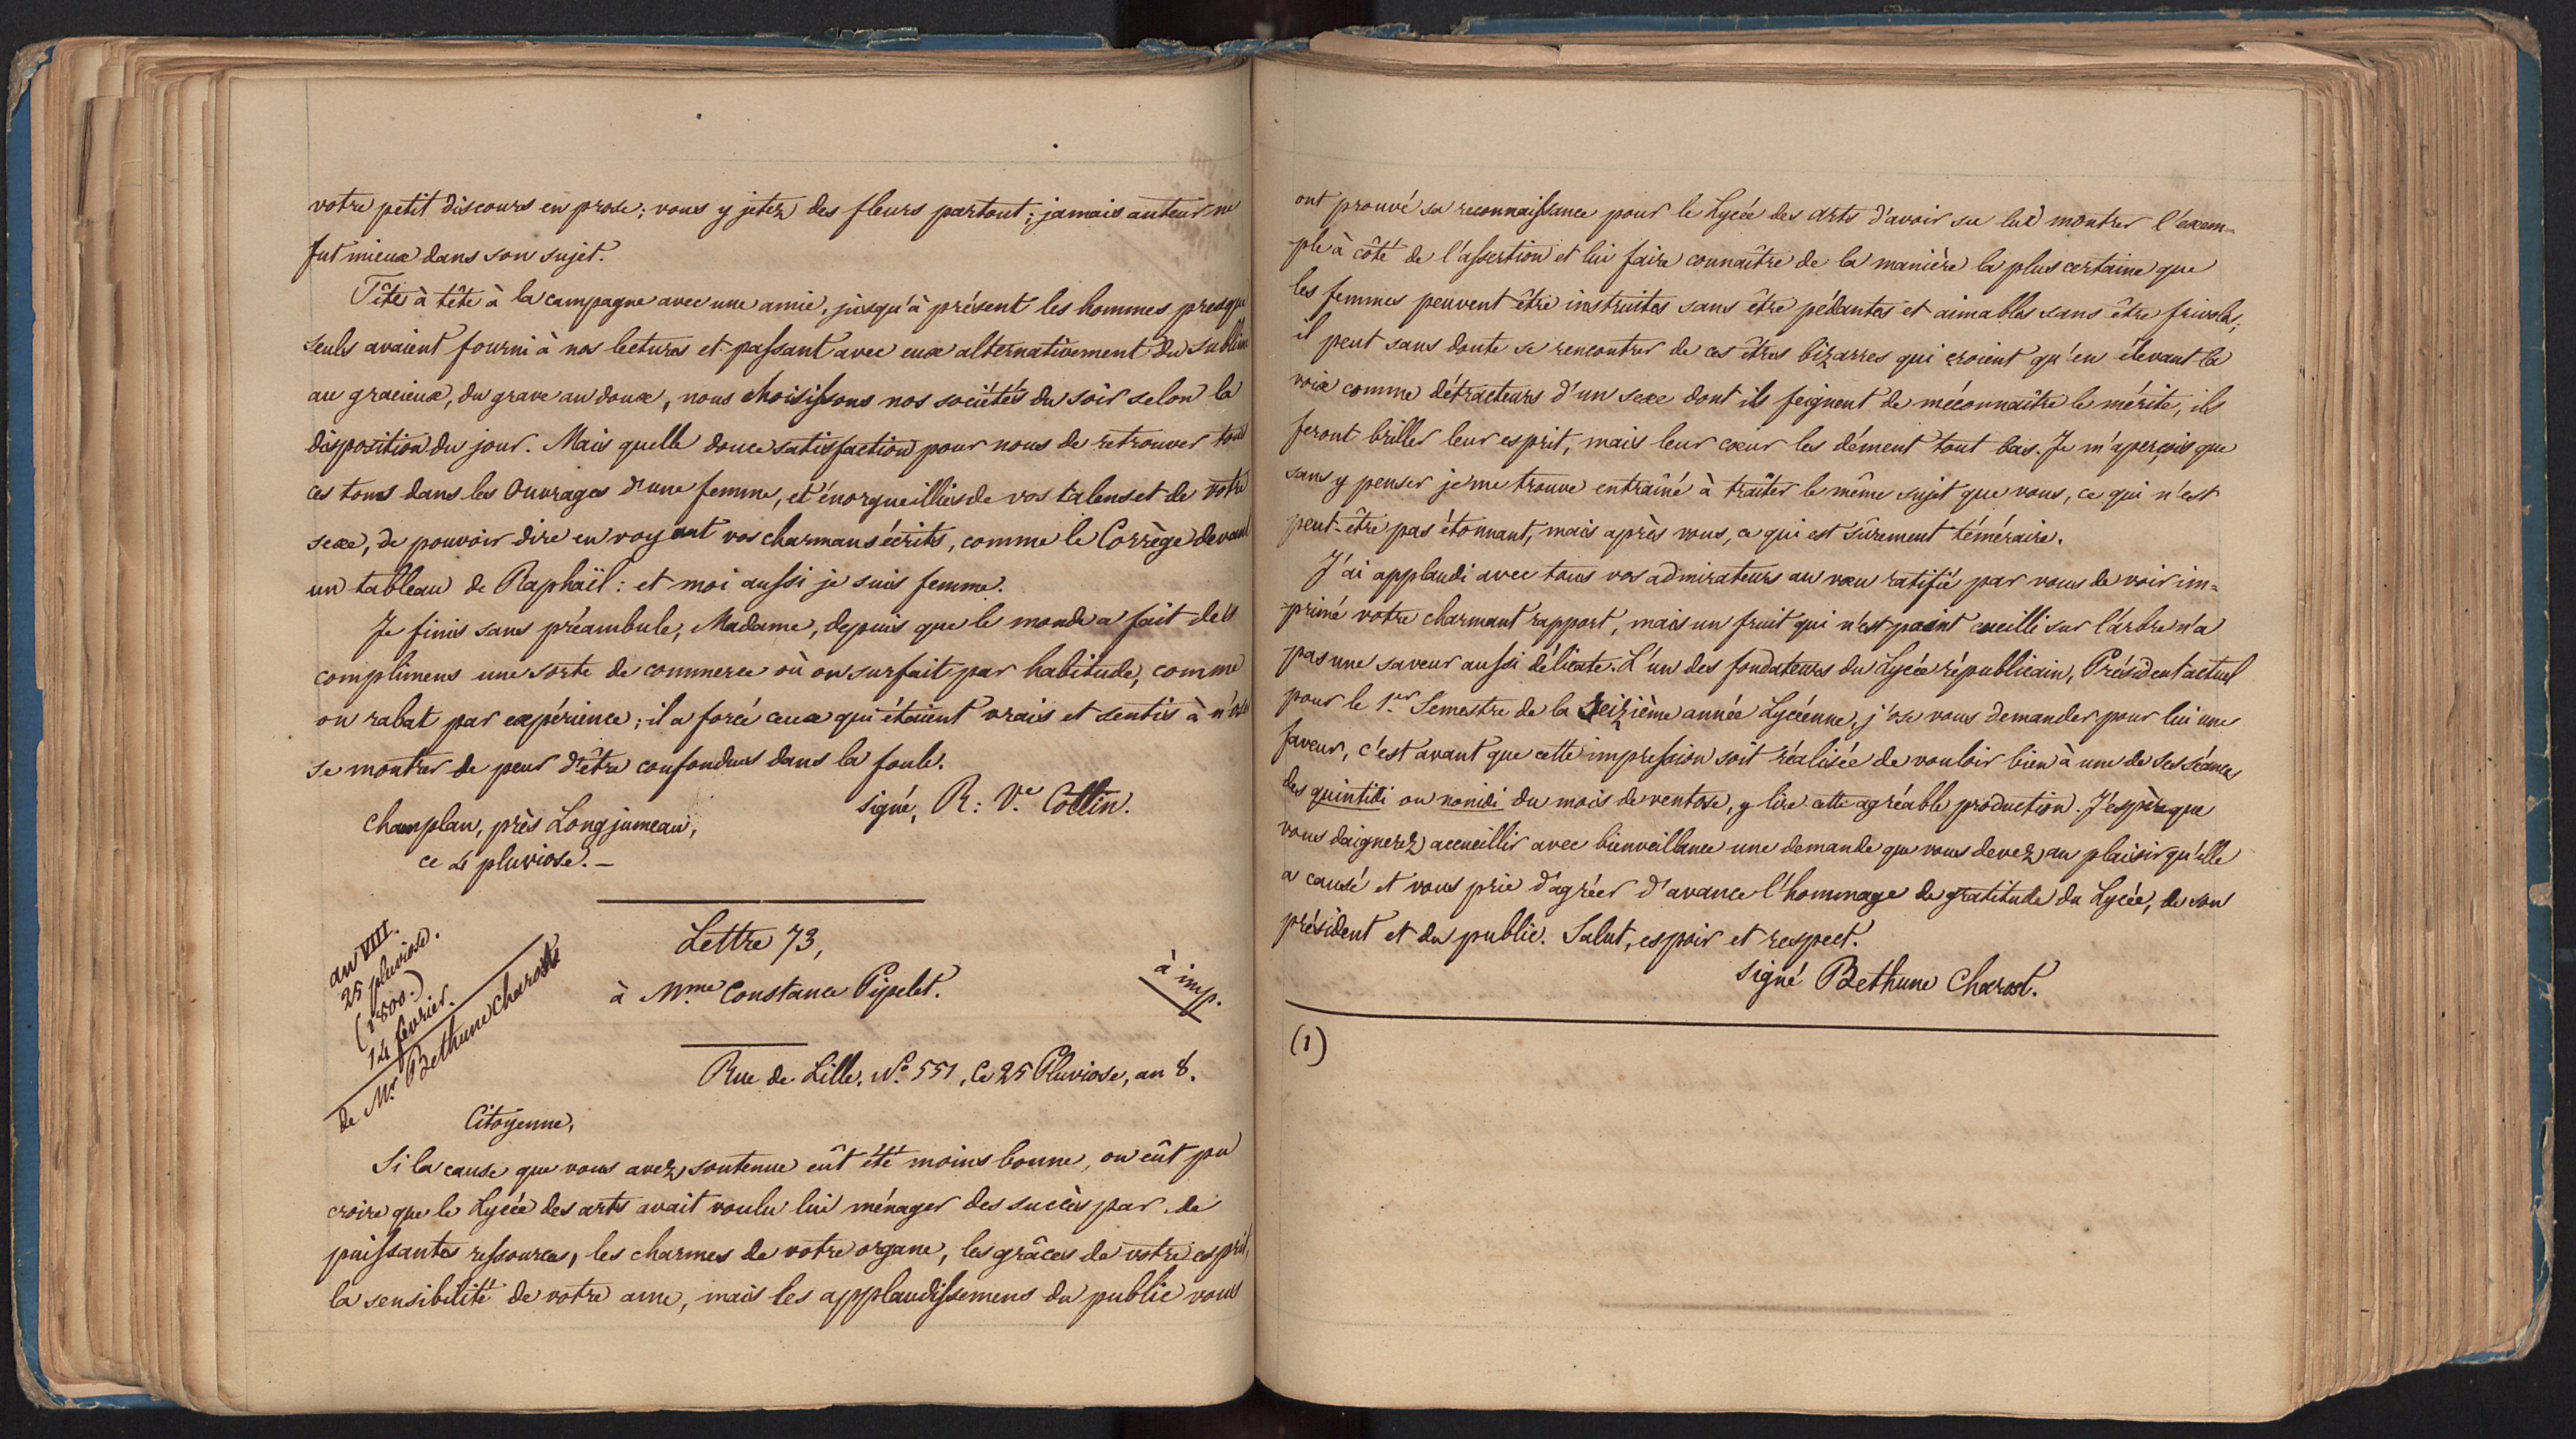 votre petit discours en prose; vous y jetez des fleurs partout; jamais auteur ne
fut mieux dans son sujet.
Tête à tête à la campagne avec une amie, jusqu'à présent les hommes presque
seuls avaient fourni à nos lectures et passant avec eux alternativement du sublime
au gracieux, du grave au doux, nous choisissons nos sociétés du soir selon la
disposition du jour. Mais quelle douce satisfaction pour nous de retrouver tous
ces tons dans les Ouvrages d'une femme, et énorgueillies de vos talens et de notre
sexe, de pouvoir dire en voyant vos charmans écrits, comme le Corrège devant
un tableau de Raphaël: et moi aussi je suis femme.
Je finis sans préambule, Madame, depuis que le monde a fait des
complimens une sorte de commerce où on surfait par habitude, comme
on rabat par expérience; il a forcé ceux qui étaient vrais et sentis à n'oser
se montrer de peur d'être confondus dans la foule.
signé, R: Ve. Collin.
Champlan, près Longjumeau,
ce 4 pluviose. –
an VIII.
25 pluviose.
(1800.)
14 février.
de Mr. Bethune Charost
Lettre 73,
à Mme Constance Pipelet.
à imp.
Rue de Lille, No. 551, Ce 25 Pluviose, an 8.
Citoyenne,
Si la cause que vous avez soutenue eût été moins bonne, on eût pu
croire que le Lycée des arts avait voulu lui ménager des succès par de
puissantes ressources, les charmes de votre organe, les grâces de votre esprit,
la sensibilité de votre ame, mais les applaudissemens du public vous
ont prouvé sa reconnaissance pour le Lycée des Arts d'avoir su lui montrer l'exem-
ple à côté de l'assertion et lui faire connaître de la manière la plus certaine que
les femmes peuvent être instruites sans être pédantes et aimables sans être frivoles;
il peut sans doute se rencontrer de ces êtres bizarres qui croient qu'en élevant la
voix comme détracteurs d'un sexe dont ils feignent de méconnaître le mérite, ils
feront briller leur esprit, mais leur cœur les dément tout bas. Je m'aperçois que
sans y penser je me trouve entraîné à traiter le même sujet que vous, ce qui n'est
peut-être pas étonnant, mais après vous, ce qui est sûrement téméraire.
J'ai applaudi avec tous vos admirateurs au vœu ratifié par vous de voir im-
primé votre charmant rapport, mais un fruit qui n'est point cueilli sur l'arbre n'a
pas une saveur aussi délicate. L'un des fondateurs du Lycée républicain, Président actuel
pour le 1er Semestre de la Seizième année Lycéenne, j'ose vous demander pour lui une
faveur, c'est avant que cette impression soit réalisée de vouloir bien à une de ses séances
des quintidi ou nonidi du mois de ventose, y lire cette agréable production. J'espère que
vous daignerez accueillir avec bienveillance une demande que vous devez au plaisir qu'elle
a causé et vous prie d'agréer d'avance l'hommage de gratitude du Lycée, de son
président et du public. Salut, espoir et respect.
signé Bethune Charost.
(1)